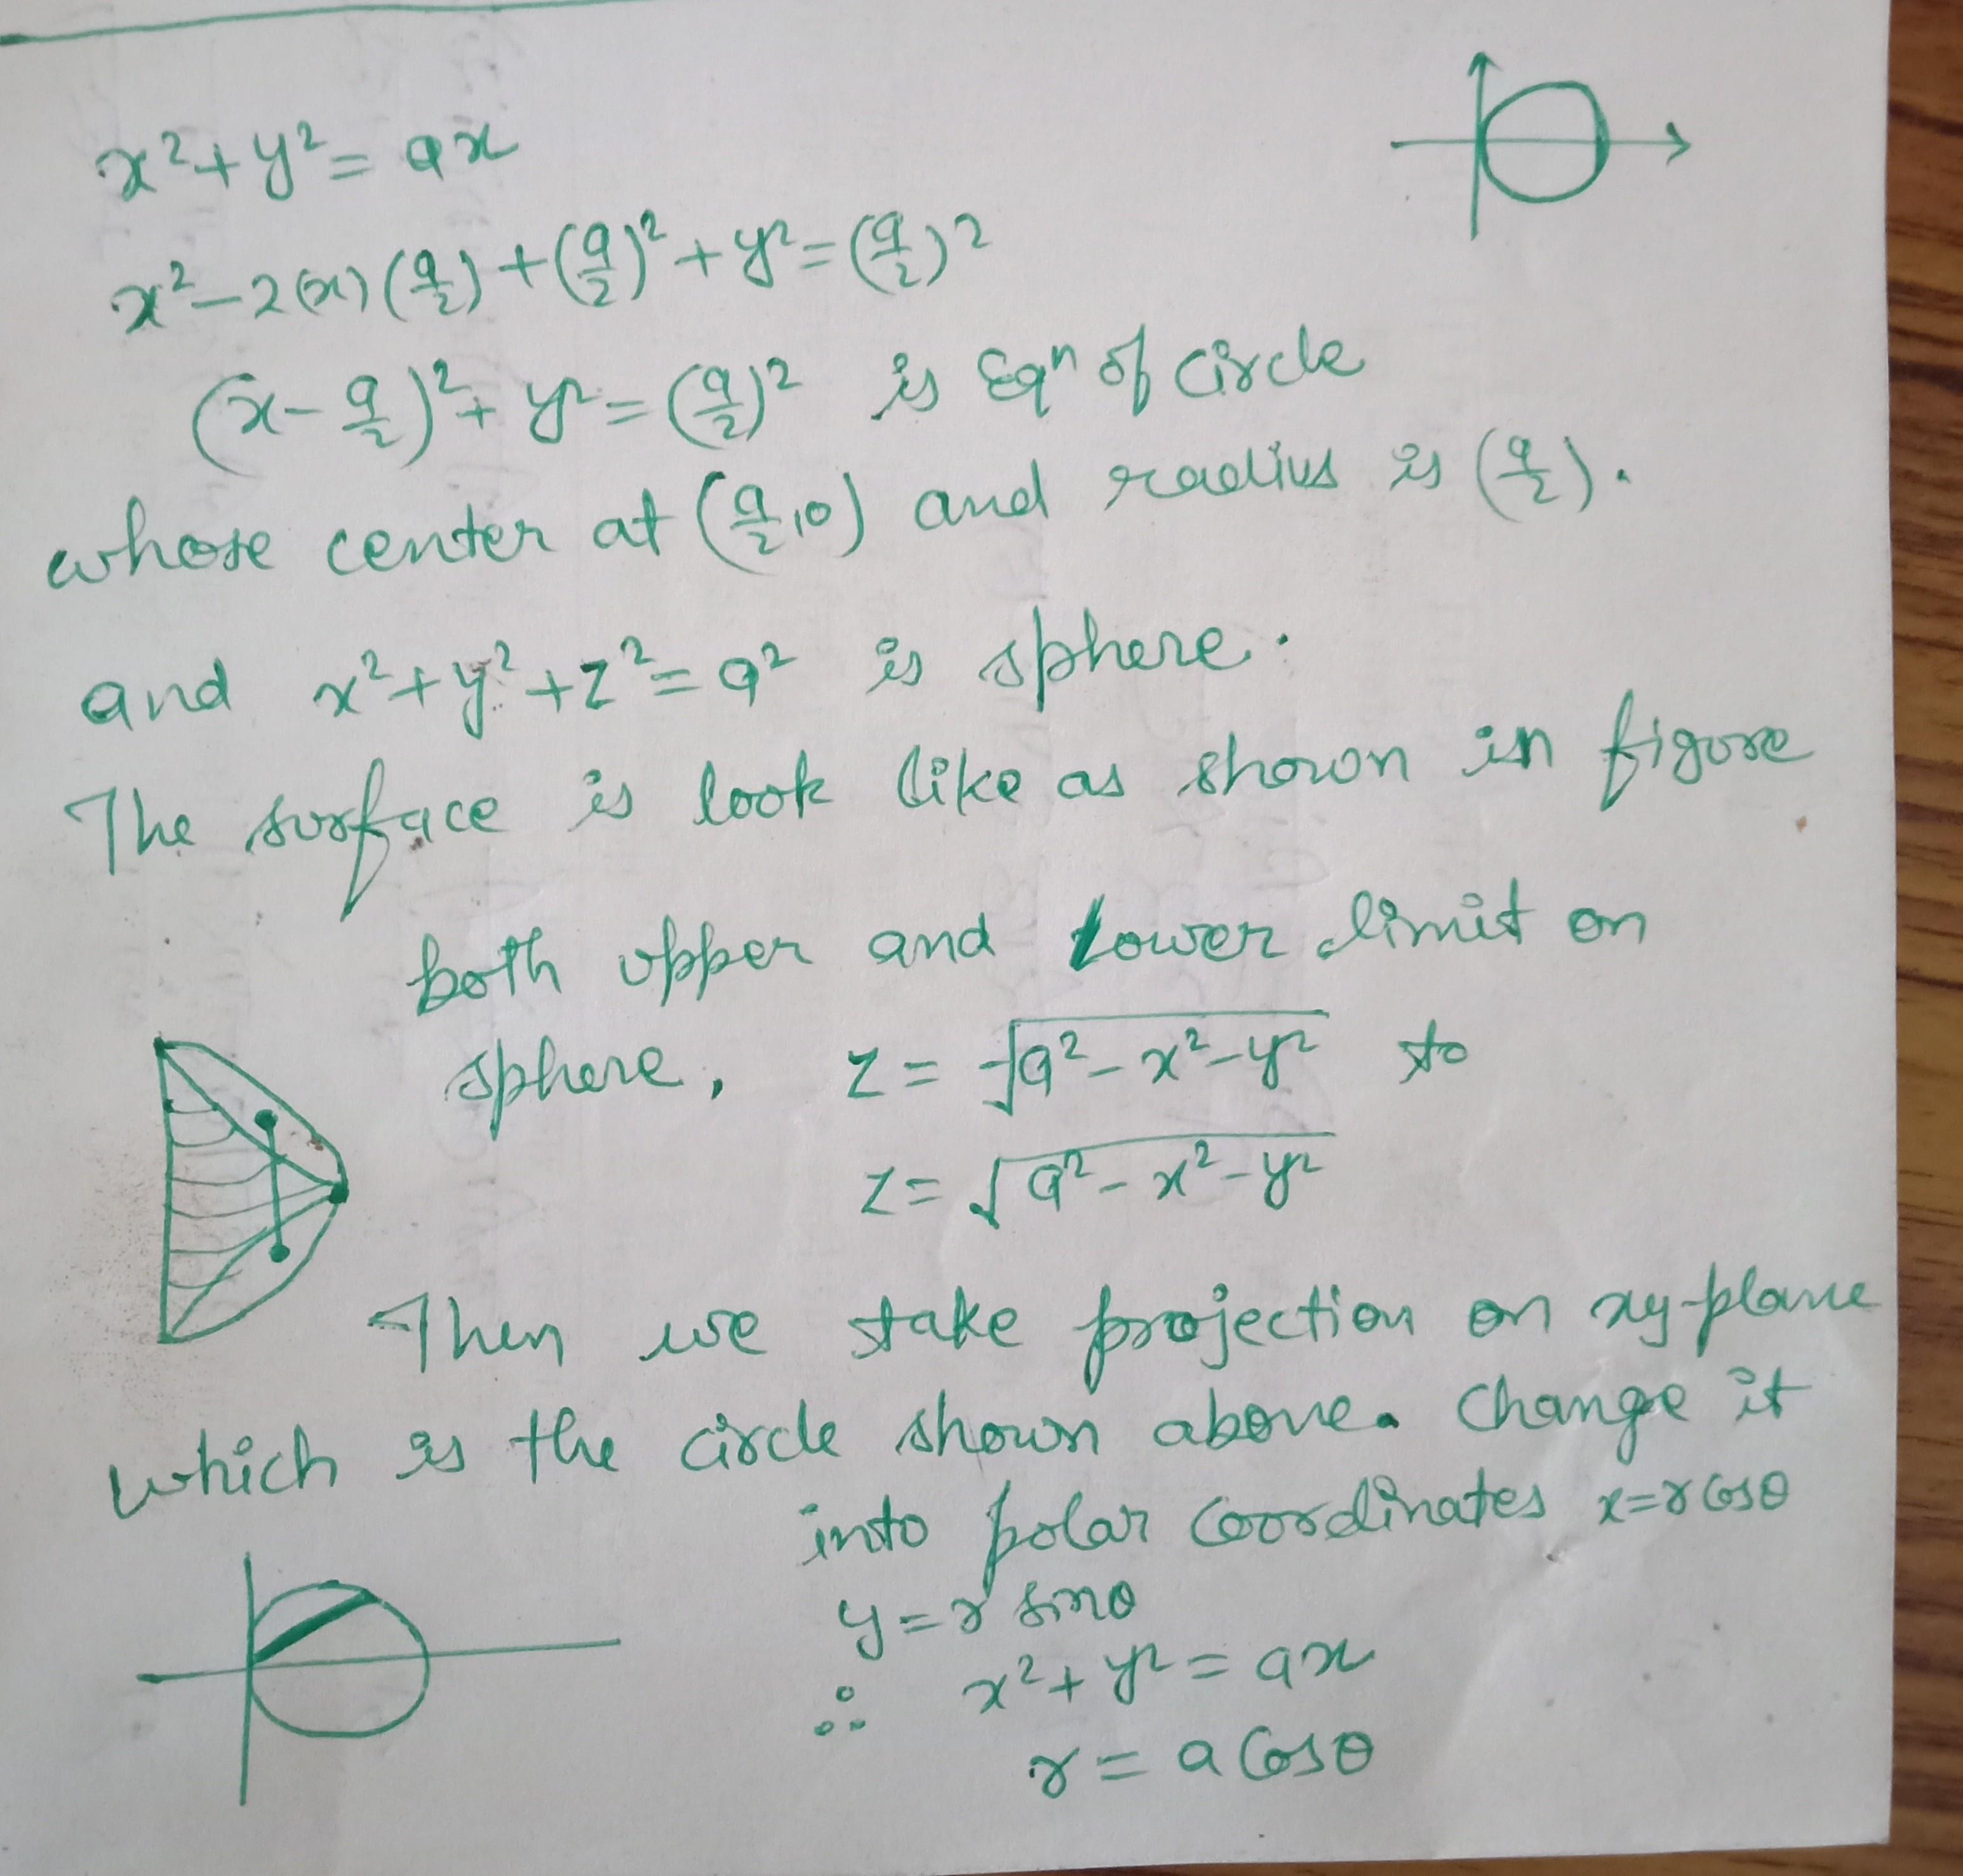 x²+y²= ax
x²-2(x)(a/2)+(a/2)²+y²=(a/2)²
(x-a/2)²+y²=(a/2)² is Eqⁿ of circle
whose center at (a/2,0) and radius is (a/2).
and x²+y²+z²=a² is sphere.
The surface is look like as shown in figure
both upper and lower limit on
sphere, z= -√a²-x²-y² to
z= √a²-x²-y²
Then we take projection on xy-plane
which is the circle shown above. Change it
into polar coordinates x=r cosθ
y=r sinθ
∴ x²+y²=ax
r = a cosθ